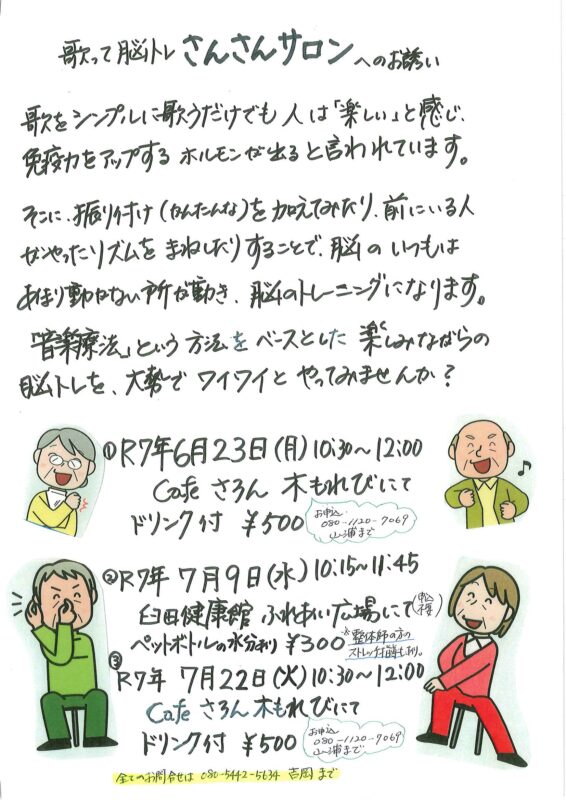 歌って脳トレ さんさんサロンへのお誘い
歌をシンプルに歌うだけでも人は「楽しい」と感じ、
免疫力をアップするホルモンが出ると言われています。
そこに、振り付け(かんたんな)を加えてみたり、前にいる人
がやったリズムをまねしたりすることで、脳のいつもは
あまり動かない所が動き、脳のトレーニングになります。
「音楽療法」という方法をベースとした楽しみながらの
脳トレを、大勢でワイワイとやってみませんか?
① R7年6月23日(月)10:30~12:00
Cafe さろん 木もれびにて
ドリンク付 ¥500
お申込
080-1120-7069
山浦まで
② R7年 7月9日(水)10:15~11:45
臼田健康館 ふれあい広場にて(申込不要)
ペットボトルの水分有り ¥300
※整体師の方の
ストレッチ指導も有り。
③ R7年 7月22日(火)10:30~12:00
Cafe さろん 木もれびにて
ドリンク付 ¥500
お申込
080-1120-7069
山浦まで
全てのお問合せは 080-5442-5634 吉岡まで